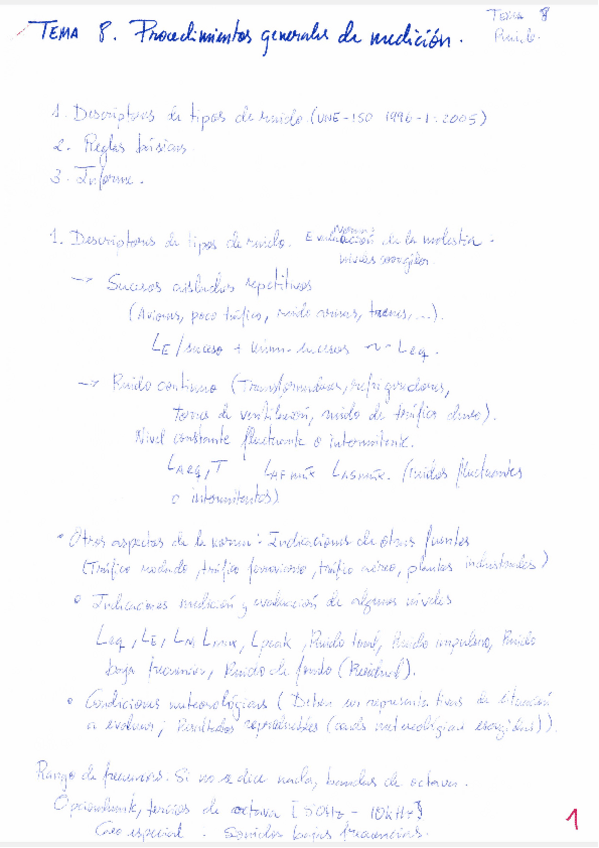 TEMA 8. Procedimientos generales de medición.
TEMA 8
Ruido.
1. Descriptores de tipos de ruido (UNE-ISO 1996-1:2005)
2. Reglas básicas
3. Informe.
1. Descriptores de tipos de ruido. Evaluación de la molestia:
niveles
→ Sucesos aislados repetitivos
(Aviones, poco tráfico, ruido, trenes,...).
LE/suceso + núm. sucesos ~ Leq.
→ Ruido continuo (Transformadores, refrigeradores,
torres de ventilación, ruido de tráfico denso).
Nivel constante fluctuante o intermitente.
LAeq,T LAFmáx LASmáx. (ruidos fluctuantes
o intermitentes)
• Otros aspectos de la norma: Indicaciones de otras fuentes
(Tráfico rodado, tráfico ferroviario, tráfico aéreo, plantas industriales)
• Indicaciones medición y evaluación de algunos niveles
Leq, LE, LN Lmax, Lpeak, Ruido tonal, Ruido impulsivo, Ruido
baja frecuencia, Ruido de fondo (Residual).
• Condiciones meteorológicas (Deben ser representativas de situación
a evaluar; Resultados reproducibles (conds meteorológicas escogidas)).
Rango de frecuencias. Si no se dice nada, bandas de octava.
Opcionalmente, tercios de octava [50Hz - 10kHz]
Caso especial. Sonidos bajas frecuencias.
1